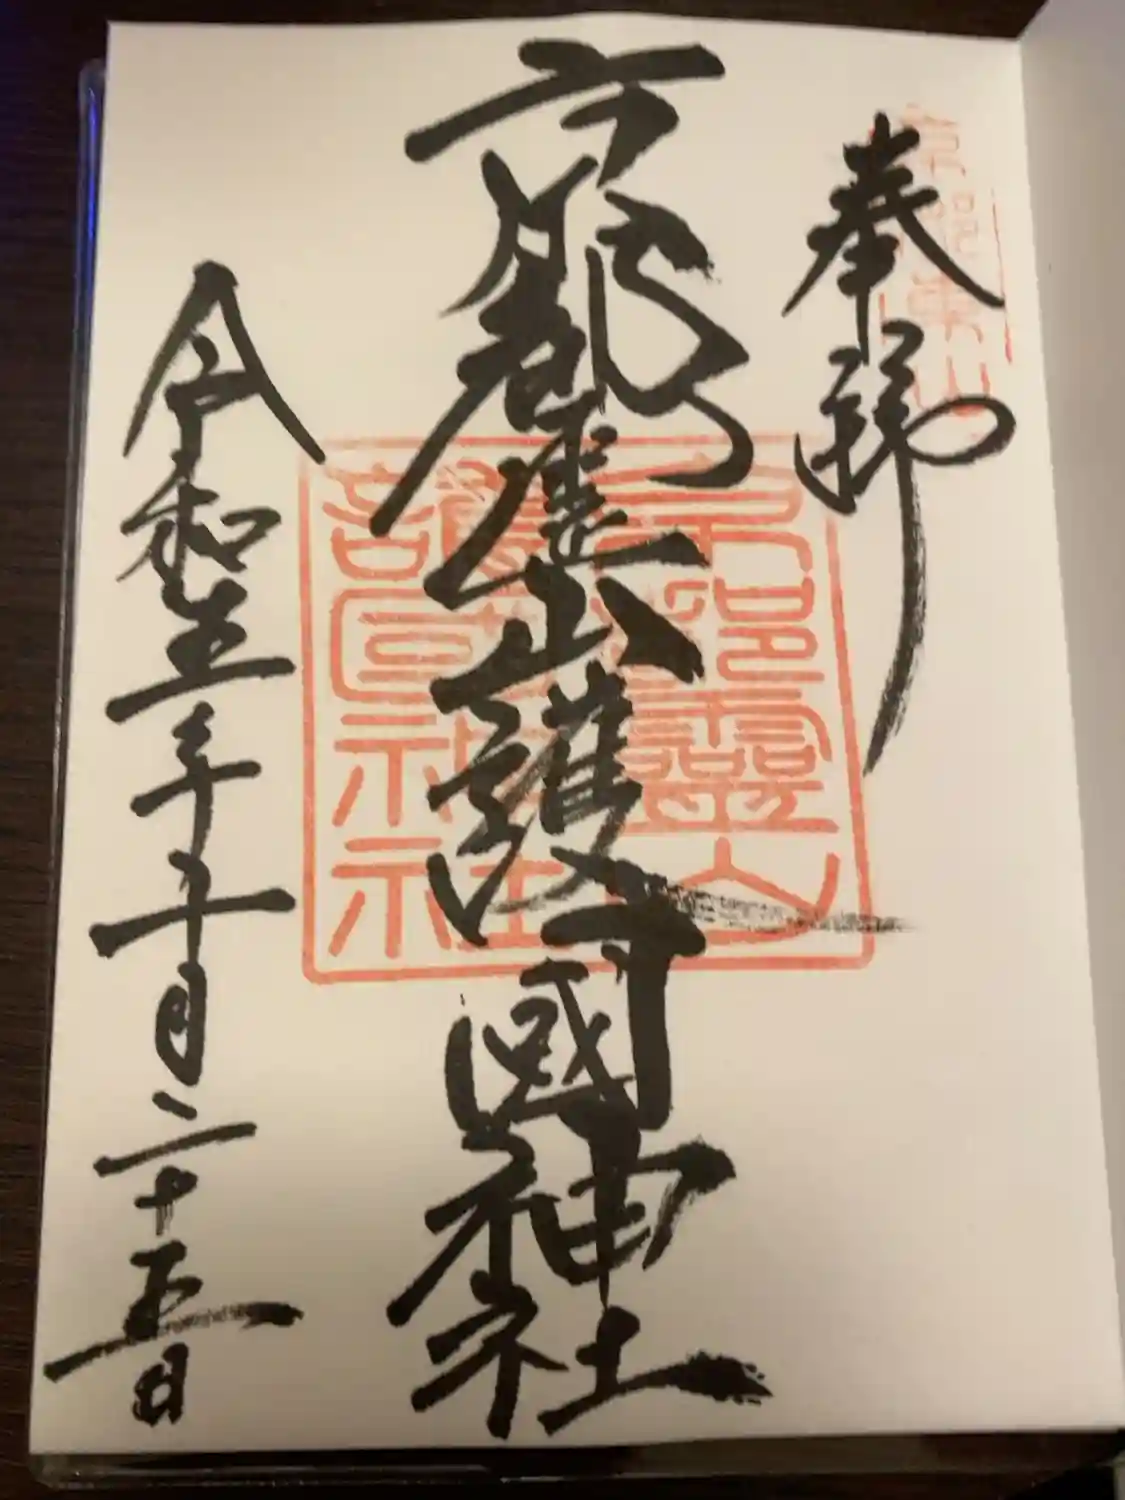 京都東山
奉拝
京都霊山護國神社
京都靈山
護國神社
令和五年十月二十五日